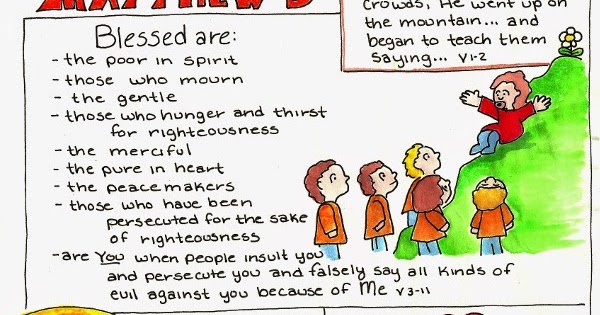 MATTHEW 5
crowds, He went up on
the mountain... and
began to teach them
saying... v1-2
Blessed are:
- the poor in spirit
- those who mourn
- the gentle
- those who hunger and thirst
for righteousness
- the merciful
- the pure in heart
- the peacemakers
- those who have been
persecuted for the sake
of righteousness
- are You when people insult you
and persecute you and falsely say all kinds of
evil against you because of Me v3-11